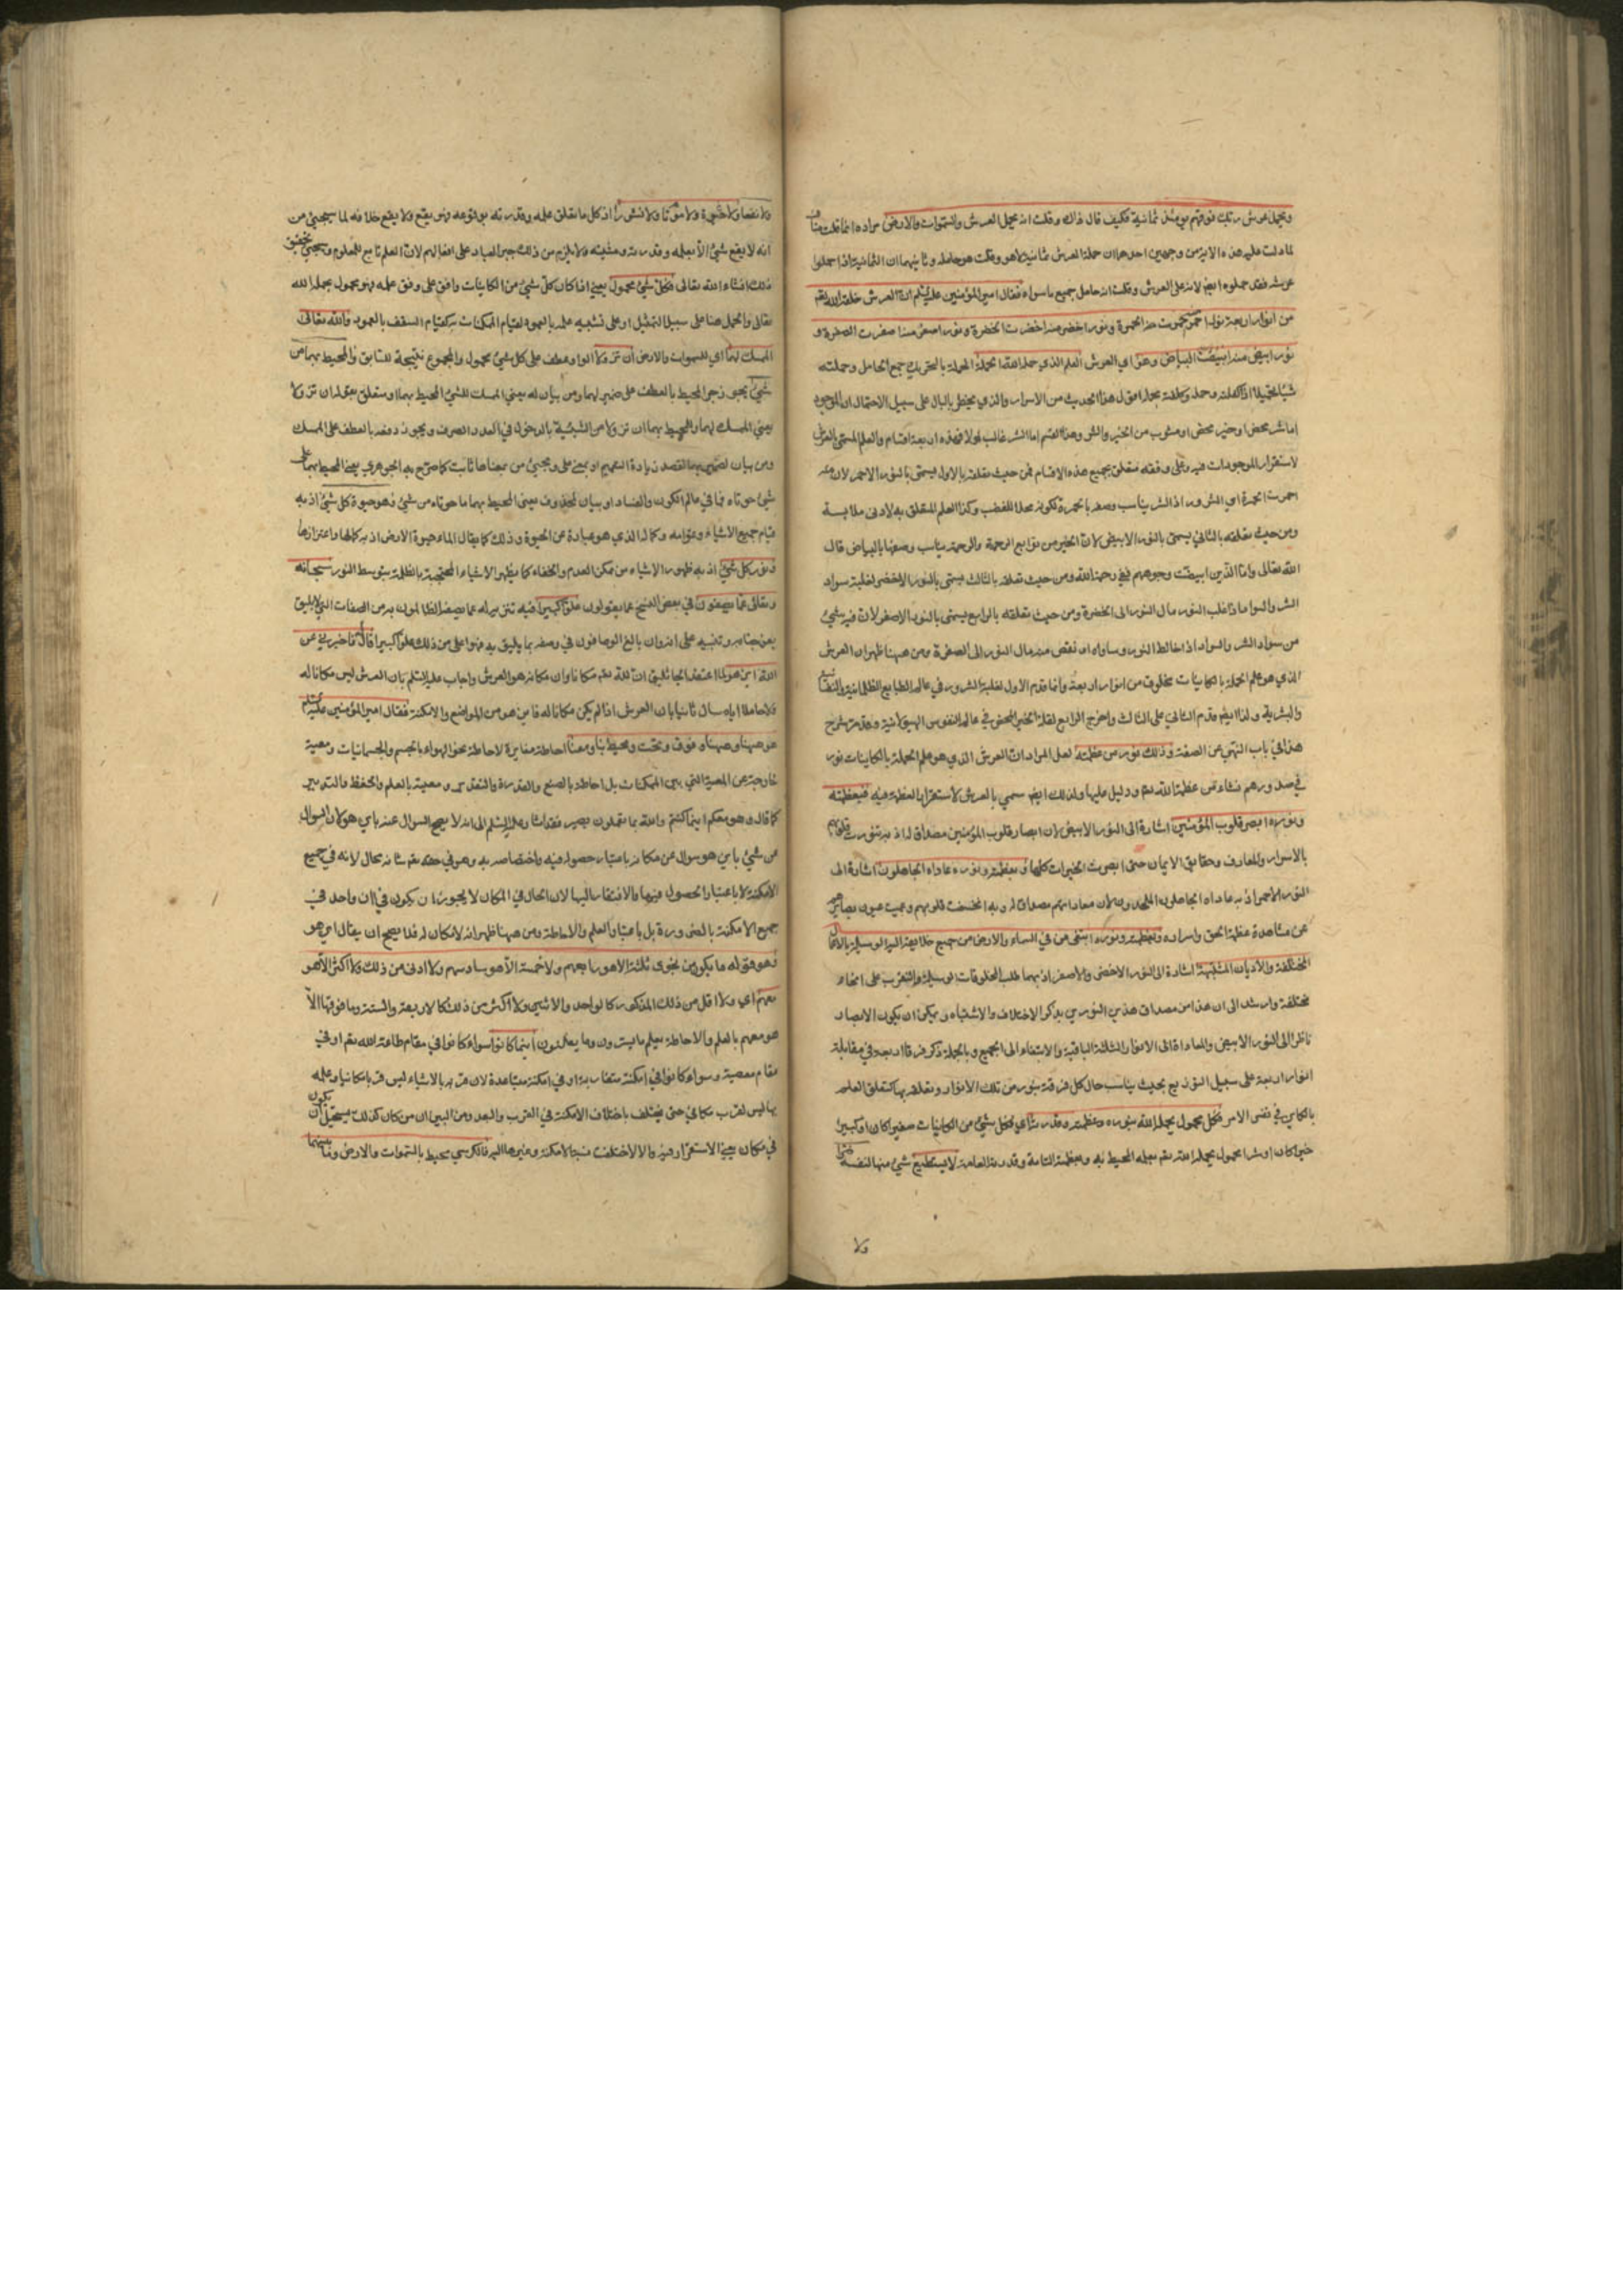 ويحمل عرش ربك فوقهم يومئذ ثمانية فكيف قال ذلك وقلت انه يحمل العرش والسموات والارض مراده انما قلت
لما دلت عليه هذه الاية من وجهين احدهما ان حملة العرش ثمانية لا هو وقلت هو حامله وثانيهما ان الثمانية اذا حملوا
عرشه فقد حملوه ايضا لانه على العرش وقلت انه حامل جميع ما سواه فقال امير المؤمنين عليه السلم ان العرش خلقه الله تعم
من انوار اربعة نور احمر منه احمرت الحمرة ونور اخضر منه اخضرت الخضرة ونور اصفر منه اصفرت الصفرة و
نور ابيض منه ابيض البياض وهو اي العرش العلم الذي حمله الله الحملة الحملة بالتحريك جمع الحامل وحملته
اما شر محض او خير محض او مشوب من الخير والشر وهذا القسم اما الشر غالب اولا فهذه اربعة اقسام والعلم المسمى بالعرش
لاستقرار الموجودات فيه وعلى وفقه متعلق بجميع هذه الاقسام فمن حيث تعلقه بالاول يسمى بالنور الاحمر لان منه
احمرت الحمرة اي الشرور اذ الشر يناسب وصفه بالحمرة لكونه محلا للغضب وكذا العلم المتعلق به لادنى ملابسة
ومن حيث تعلقه بالثاني يسمى بالنور الابيض لان الخير من توابع الرحمة والرحمة يناسب وصفها بالبياض قال
الله تعالى واما الذين ابيضت وجوههم ففي رحمة الله ومن حيث تعلقه بالثالث يسمى بالنور الاخضر لغلبة سواد
الشر والسواد اذا غلب النور مال النور الى الخضرة ومن حيث تعلقه بالرابع يسمى بالنور الاصفر لان فيه شيئ
من سواد الشر والسواد اذا خالط النور وساواه او نقص منه مال النور الى الصفرة ومن ههنا ظهر ان العرش
الذي هو علم الحملة بالكاينات مخلوق من انوار اربعة وانما قدم الاول لغلبة الشرور في عالم الطبايع الظلمانية
والبشرية ولذا ايضا قدم الثاني على الثالث واخرج الرابع لقلة الخير المحض في عالم النفوس الهيولانية وقد مر شرح
هذا في باب النهي عن الصفة وذلك نور من عظمته لعل المراد ان العرش الذي هو علم الحملة بالكاينات نور
في صدورهم نشاء من عظمة الله تعم ودليل عليها ولذلك ايضا سمي بالعرش لاستقرار العظمة فيه فبعظمته
ونوره ابصر قلوب المؤمنين اشارة الى النور الابيض لان ابصار قلوب المؤمنين مصداق له اذ به تنورت قلوبهم
بالاسرار والمعارف وحقايق الايمان حتى ابصرت الخيرات كلها وبعظمته ونوره عاداه الجاهلون اشارة الى
النور الاحمر اذ به عاداه الجاهلون الملحدون لان معاداتهم مصداق له وبه انخسفت قلوبهم وعميت عيون بصايرهم
عن مشاهدة عظمة الحق واسراره وبعظمته ونوره ابتغى من في السماء والارض من جميع خلايقه اليه الوسيلة بالاعمال
المختلفة والاديان المشتبهة اشارة الى النور الاخضر والاصفر اذ بهما طلب المخلوقات الوسيلة والتقرب على انحاء
مختلفة وارشد الى ان هذا من مصداق هذين النورين بذكر الاختلاف والاشتباه ويمكن ان يكون الابصار
ناظرا الى النور الابيض والمعاداة الى الانوار الثلثة الباقية والابتغاء الى الجميع وبالجملة ذكر فرقا اربعة في مقابلة
انوار اربعة على سبيل التوزيع بحيث يناسب حال كل فرقة بنور من تلك الانوار وتعلقه بها كتعلق العلم
بالكاين في نفس الامر فكل محمول يحمله الله بنوره وعظمته وقدرته اي فكل شيئ من الكاينات صغيرا كان او كبيرا
خيرا كان او شرا محمول يحمله الله تعم بعلمه المحيط به وبعظمته التامة وقدرته العامة لا يستطيع شيئ منها لنفسه ضرا
ولا
ولا نفعا ولا حيوة ولا موتا ولا نشورا اذ كل ما تعلق علمه وقدرته بوقوعه فهو يقع ولا يقع خلافه لما سيجيئ من
انه لا يقع شيئ الا بعلمه وقدرته ومشيته ولا يلزم من ذلك جبر العباد على افعالهم لان العلم تابع للمعلوم وسيجيئ تحقيق
ذلك انشاء الله تعالى فكل شيئ محمول يعني اذا كان كل شيئ من الكاينات واقع على وفق علمه فهو محمول يحمله الله
تعالى والحمل هنا على سبيل التمثيل او على تشبيه علمه بالعمود لقيام الممكنات به كقيام السقف بالعمود والله تعالى
الممسك لهما اي للسموات والارض ان تزولا الواو عطف على كل شيئ محمول والمجموع نتيجة للسابق والمحيط بهما من
شيئ يجوز جر المحيط بالعطف على ضمير لهما ومن بيان له يعني الممسك للشيئ المحيط بهما او متعلق بقوله ان تزولا
يعني الممسك لهما والمحيط بهما ان تزولا من الشيئية بالدخول في العدم الصرف ويجوز رفعه بالعطف على الممسك
ومن بيان لضمير بهما لقصد زيادة التعميم او بمعنى على ومجيئ من بمعناها ثابت كما صرح به الجوهري يعني المحيط بهما على
شيئ حوتاه مما في عالم الكون والفساد او بيان لمحذوف يعني المحيط بهما ما حوتاه من شيئ وهو حيوة كل شيئ اذ به
قيام جميع الاشياء وقوامه وكماله الذي هو عبارة عن الحيوة وذلك كما يقال الماء حيوة الارض اذ به كمالها واهتزازها
ونور كل شيئ اذ به ظهور الاشياء من مكمن العدم والخفاء كما يظهر الاشياء المحتجبة بالظلمة بتوسط النور سبحانه
وتعالى عما يصفون في بعض النسخ عما يقولون علوا كبيرا فيه تنزيه له عما يصفه الظالمون به من الصفات التي لا يليق
بعز جنابه وتنبيه على انه وان بالغ الواصفون في وصفه بما يليق به فهو اعلى من ذلك علوا كبيرا قال له فاخبرني عن
الله اين هو لما اعتقد الجاثليق ان لله تعم مكانا وان مكانه هو العرش واجاب عليه السلم بان العرش ليس مكانا له
ولا حاملا اياه سال ثانيا بان العرش اذا لم يكن مكانا له فاين هو من المواضع والامكنة فقال امير المؤمنين عليه السلم
هو ههنا وههنا وفوق وتحت ومحيط بنا ومعنا احاطة مغايرة لاحاطة نحو الهواء بالجسم والجسمانيات ومعية
خارجة عن المعية التي بين الممكنات بل احاطة بالصنع والقدرة والتقدير ومعية بالعلم والحفظ والتدبير
كما قال وهو معكم اينما كنتم والله بما تعملون بصير فقد اشار عليه السلم الى انه لا يصح السؤال عنه باين هو لان السؤال
عن شيئ باين هو سؤال عن مكانه باعتبار حصوله فيه واختصاصه به وهو في حقه تعم شانه محال لانه في جميع
الامكنة لا باعتبار الحصول فيها والافتقار اليها لان الحال في المكان لا يجوز ان يكون في ان واحد في
جميع الامكنة بالضرورة بل باعتبار العلم والاحاطة ومن ههنا ظهر انه لا مكان له فلا يصح ان يقال اين هو
وهو قوله ما يكون من نجوى ثلثة الا هو رابعهم ولا خمسة الا هو سادسهم ولا ادنى من ذلك ولا اكثر الا هو
معهم اي ولا اقل من ذلك المذكور كالواحد والاثنين ولا اكثر من ذلك كالاربعة والستة وما فوقها الا
هو معهم بالعلم والاحاطة يعلم ما يسرون وما يعلنون اينما كانوا سواء كانوا في مقام طاعة الله تعم او في
مقام معصيته وسواء كانوا في امكنة متقاربة او في امكنة متباعدة لان قربه بالاشياء ليس قربا مكانيا وعلمه
بها ليس لقرب مكاني حتى يختلف باختلاف الامكنة في القرب والبعد ومن البين ان من كان كذلك يستحيل ان يكون
في مكان بمعنى الاستقرار فيه والا لاختلفت نسبة الامكنة وغيرها اليه فالكرسي محيط بالسموات والارض وما بينهما